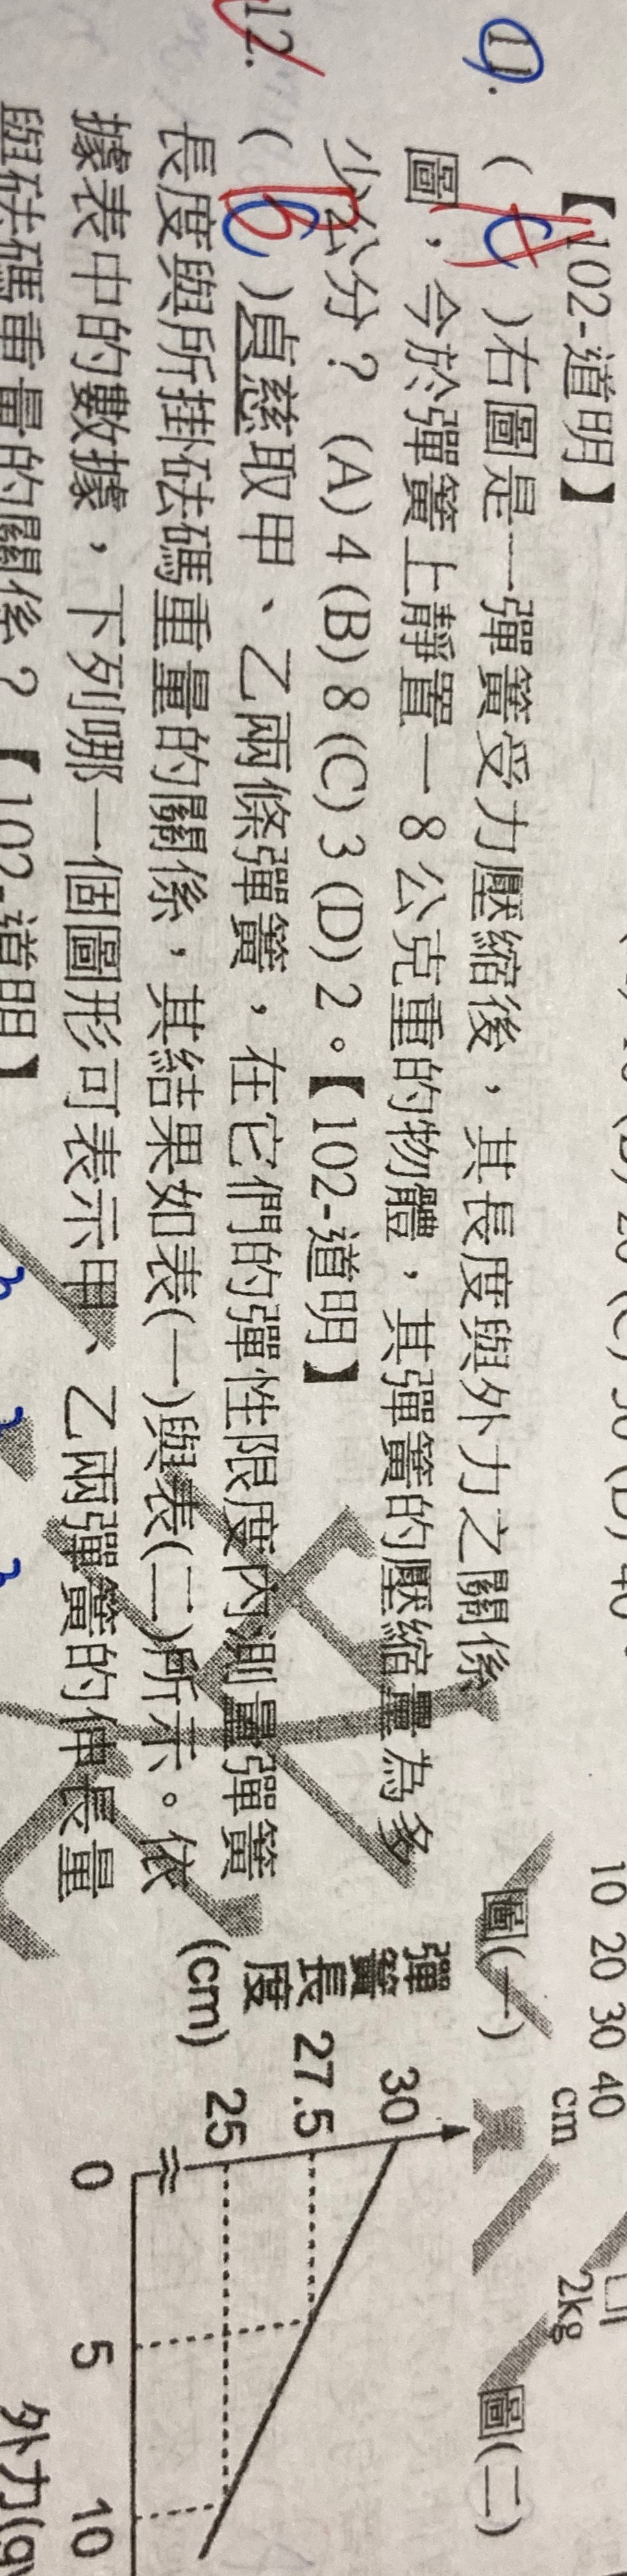 10 20 30 40
cm
2kg
圖(一)
圖(二)
【102-道明】
11. ( )右圖是一彈簧受力壓縮後，其長度與外力之關係
圖，今於彈簧上靜置一8公克重的物體，其彈簧的壓縮量為多
少公分？ (A) 4 (B) 8 (C) 3 (D) 2。【102-道明】
12. ( )真慈取甲、乙兩條彈簧，在它們的彈性限度內測量彈簧
長度與所掛砝碼重量的關係，其結果如表(一)與表(二)所示。依
據表中的數據，下列哪一個圖形可表示甲、乙兩彈簧的伸長量
與砝碼重量的關係？【102-道明】
彈簧長度
(cm)
30
27.5
25
0 5 10
外力(g